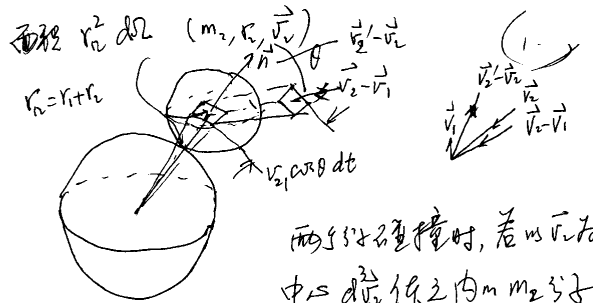 面积 r₁₂² dΩ (m₂, r₂, v⃗₂)
n⃗ θ v⃗₂′-v⃗₂
r₁₂=r₁+r₂
v⃗₂-v⃗₁
v₂₁cosθ dt
v⃗₂′-v⃗₂
v⃗₁ v⃗₂
v⃗₂-v⃗₁
两分子碰撞时, 若以 v⃗₂为
中心 d³v⃗₂ 体之内 m₂分子